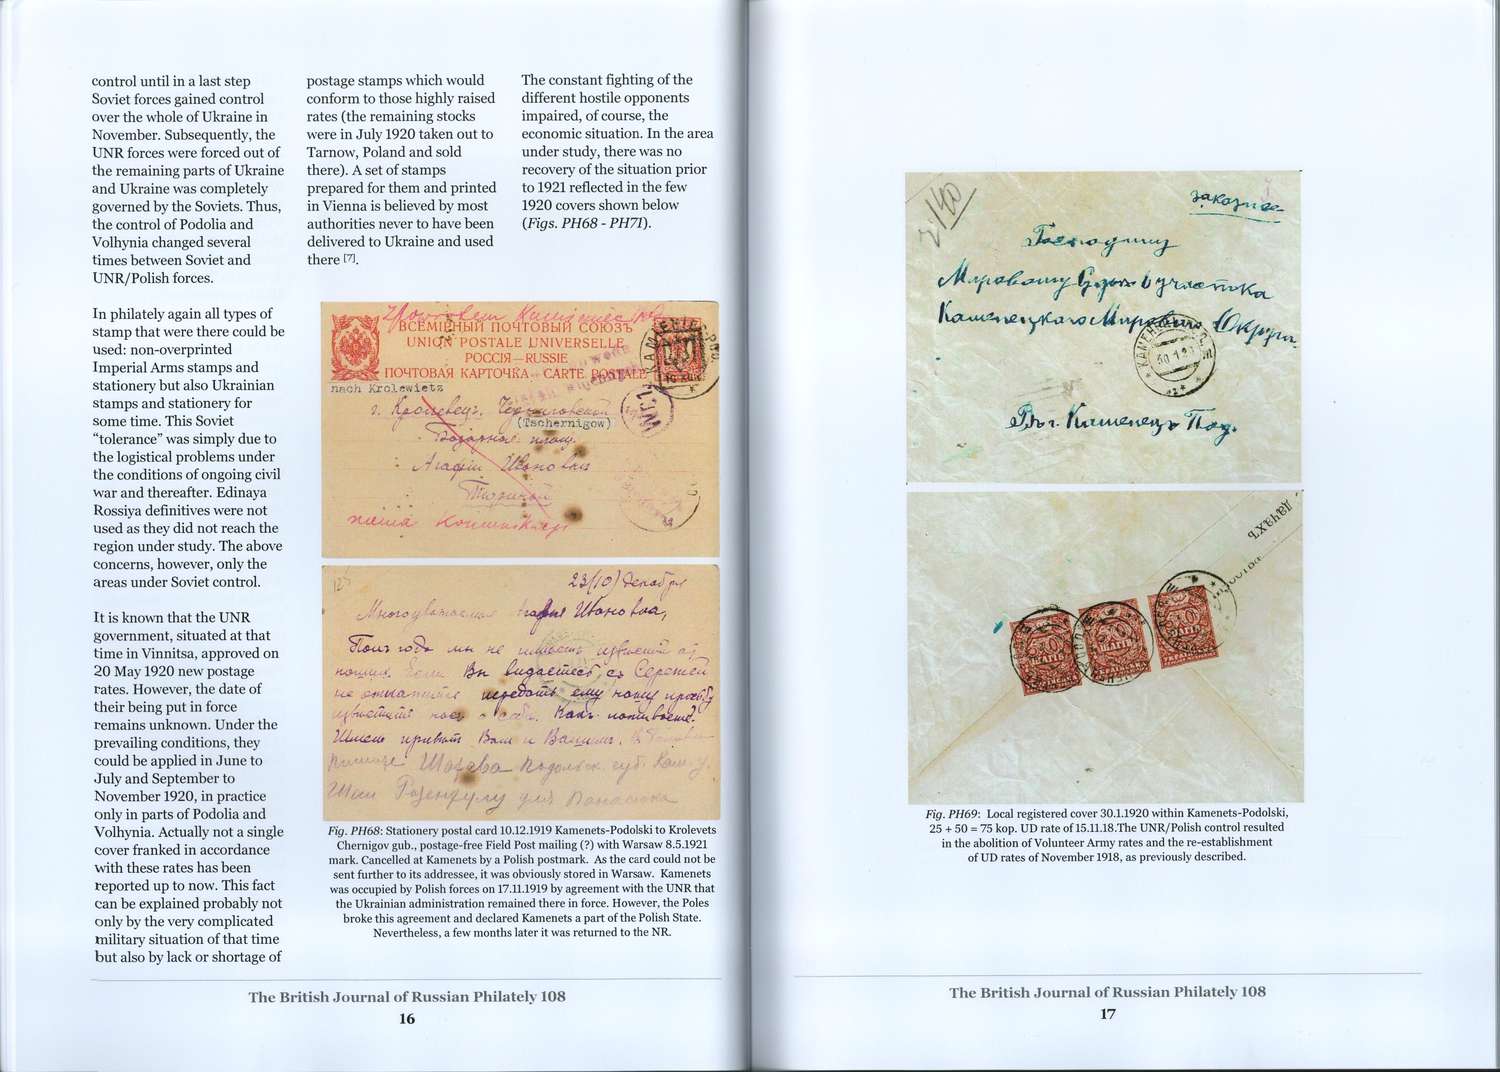 control until in a last step
Soviet forces gained control
over the whole of Ukraine in
November. Subsequently, the
UNR forces were forced out of
the remaining parts of Ukraine
and Ukraine was completely
governed by the Soviets. Thus,
the control of Podolia and
Volhynia changed several
times between Soviet and
UNR/Polish forces.
In philately again all types of
stamp that were there could be
used: non-overprinted
Imperial Arms stamps and
stationery but also Ukrainian
stamps and stationery for
some time. This Soviet
“tolerance” was simply due to
the logistical problems under
the conditions of ongoing civil
war and thereafter. Edinaya
Rossiya definitives were not
used as they did not reach the
region under study. The above
concerns, however, only the
areas under Soviet control.
It is known that the UNR
government, situated at that
time in Vinnitsa, approved on
20 May 1920 new postage
rates. However, the date of
their being put in force
remains unknown. Under the
prevailing conditions, they
could be applied in June to
July and September to
November 1920, in practice
only in parts of Podolia and
Volhynia. Actually not a single
cover franked in accordance
with these rates has been
reported up to now. This fact
can be explained probably not
only by the very complicated
military situation of that time
but also by lack or shortage of
postage stamps which would
conform to those highly raised
rates (the remaining stocks
were in July 1920 taken out to
Tarnow, Poland and sold
there). A set of stamps
prepared for them and printed
in Vienna is believed by most
authorities never to have been
delivered to Ukraine and used
there [7].
The constant fighting of the
different hostile opponents
impaired, of course, the
economic situation. In the area
under study, there was no
recovery of the situation prior
to 1921 reflected in the few
1920 covers shown below
(Figs. PH68 - PH71).
ВСЕМІРНЫЙ ПОЧТОВЫЙ СОЮЗЪ
UNION POSTALE UNIVERSELLE
РОССІЯ—RUSSIE
ПОЧТОВАЯ КАРТОЧКА—CARTE POSTALE
nach Krolewietz
г. Кролевецъ, Черниговской
(Tschernigow)
Базарная площ.
Агафіи Ивановны
23/10/ Декабря
Многоуважаемая Ивановна,
Fig. PH68: Stationery postal card 10.12.1919 Kamenets-Podolski to Krolevets
Chernigov gub., postage-free Field Post mailing (?) with Warsaw 8.5.1921
mark. Cancelled at Kamenets by a Polish postmark. As the card could not be
sent further to its addressee, it was obviously stored in Warsaw. Kamenets
was occupied by Polish forces on 17.11.1919 by agreement with the UNR that
the Ukrainian administration remained there in force. However, the Poles
broke this agreement and declared Kamenets a part of the Polish State.
Nevertheless, a few months later it was returned to the NR.
The British Journal of Russian Philately 108
16
заказное
Господину
Мировому Судьѣ 6 участка
Каменецкаго Мирового Округа.
Въ г. Каменецъ Под.
ДАЧАХЪ
Fig. PH69: Local registered cover 30.1.1920 within Kamenets-Podolski,
25 + 50 = 75 kop. UD rate of 15.11.18.The UNR/Polish control resulted
in the abolition of Volunteer Army rates and the re-establishment
of UD rates of November 1918, as previously described.
The British Journal of Russian Philately 108
17